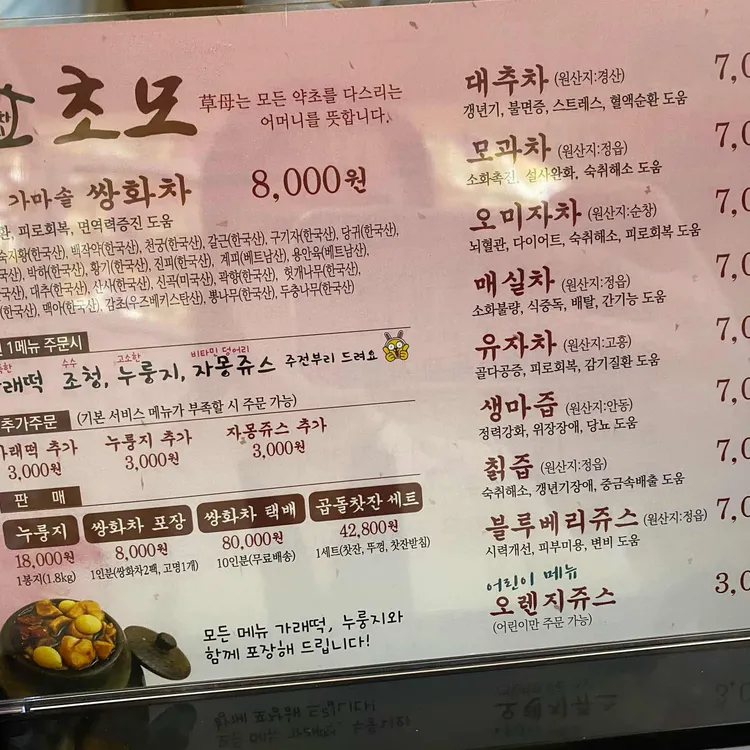 초모
草母는 모든 약초를 다스리는
어머니를 뜻합니다.
가마솥 쌍화차 8,000원
피로회복, 면역력증진 도움
숙지황(한국산), 백작약(한국산), 천궁(한국산), 갈근(한국산), 구기자(한국산), 당귀(한국산),
박하(한국산), 황기(한국산), 진피(한국산), 계피(베트남산), 용안육(베트남산),
대추(한국산), 산사(한국산), 신곡(미국산), 곽향(한국산), 헛개나무(한국산)
(한국산), 맥아(한국산), 감초(우즈베키스탄산), 뽕나무(한국산), 두충나무(한국산)
1메뉴 주문시
수수 고소한 비타민 덩어리
가래떡 조청, 누룽지, 자몽쥬스 주전부리 드려요
추가주문 (기본 서비스 메뉴가 부족할 시 주문 가능)
가래떡 추가 누룽지 추가 자몽쥬스 추가
3,000원 3,000원 3,000원
판 매
누룽지 쌍화차 포장 쌍화차 택배 곱돌찻잔 세트
18,000원 8,000원 80,000원 42,800원
1봉지(1.8kg) 1인분(쌍화차2팩, 고명1개) 10인분(무료배송) 1세트(찻잔, 뚜껑, 찻잔받침)
모든 메뉴 가래떡, 누룽지와
함께 포장해 드립니다!
대추차 (원산지:경산) 7,0
갱년기, 불면증, 스트레스, 혈액순환 도움
모과차 (원산지:정읍) 7,0
소화촉진, 설사완화, 숙취해소 도움
오미자차 (원산지:순창) 7,0
뇌혈관, 다이어트, 숙취해소, 피로회복 도움
매실차 (원산지:정읍) 7,0
소화불량, 식중독, 배탈, 간기능 도움
유자차 (원산지:고흥) 7,0
골다공증, 피로회복, 감기질환 도움
생마즙 (원산지:안동) 7,0
정력강화, 위장장애, 당뇨 도움
칡즙 (원산지:정읍) 7,0
숙취해소, 갱년기장애, 중금속배출 도움
블루베리쥬스 (원산지:정읍) 7,0
시력개선, 피부미용, 변비 도움
어린이 메뉴
오렌지쥬스 3,0
(어린이만 주문 가능)